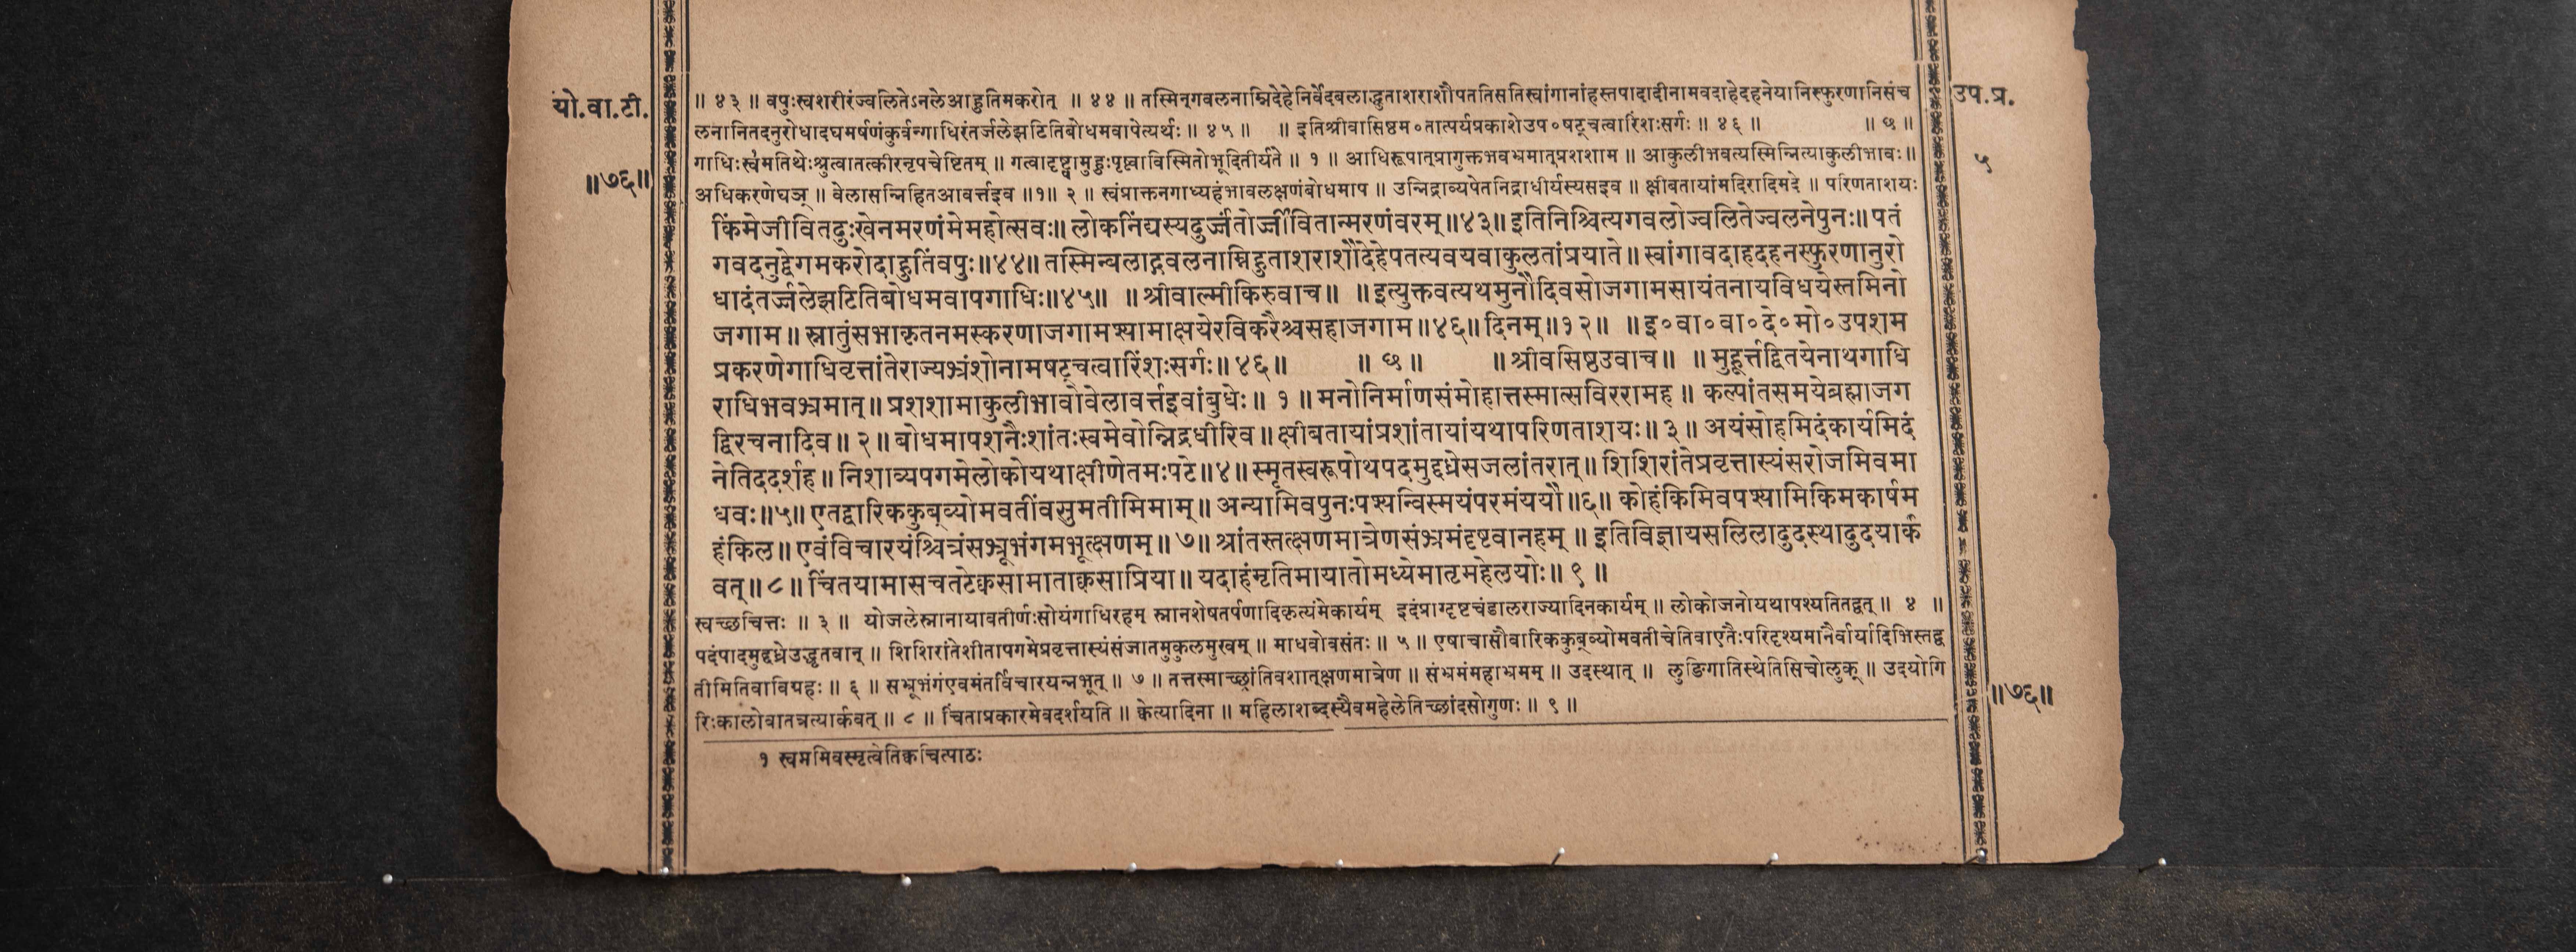 यो.वा.टी.
॥७६॥
उप.प्र.
५
॥ ४३ ॥ वपुःस्वशरीरंज्वलितेऽनलेआहुतिमकरोत् ॥ ४४ ॥ तस्मिन्गवलनाम्निदेहेनिर्वेदबलाद्धुताशराशौपततिसतिस्वांगानांहस्तपादादीनामवदाहेदहनेयानिस्फुरणानिसंच
लनानितदनुरोधादघमर्षणंकुर्वन्गाधिरंतर्जलेझटितिबोधमवापेत्यर्थः ॥ ४५ ॥ ॥ इतिश्रीवासिष्ठम॰तात्पर्यप्रकाशेउप॰षट्चत्वारिंशःसर्गः ॥ ४६ ॥ ॥ ७ ॥
गाधिःस्वमतिथेःश्रुत्वातत्कीरनृपचेष्टितम् ॥ गत्वादृष्ट्वामुहुःपृष्ट्वाविस्मितोभूदितीर्यते ॥ १ ॥ आधिरूपात्प्रागुक्तभवभ्रमात्प्रशशाम ॥ आकुलीभवत्यस्मिन्नित्याकुलीभावः॥
अधिकरणेघञ् ॥ वेलासन्निहितआवर्त्तइव ॥१॥ २ ॥ स्वंप्राक्तनगाध्यहंभावलक्षणंबोधमाप ॥ उन्निद्राव्यपेतनिद्राधीर्यस्यसइव ॥ क्षीबतायांमदिरादिमदे ॥ परिणताशयः
किंमेजीवितदुःखेनमरणंमेमहोत्सवः॥ लोकनिंद्यस्यदुर्ज्जंतोर्ज्जीवितान्मरणंवरम्॥४३॥ इतिनिश्चित्यगवलोज्वलितेज्वलनेपुनः॥ पतं
गवदनुद्वेगमकरोदाहुतिंवपुः॥४४॥ तस्मिन्बलाद्गवलनाम्निहुताशराशौदेहेपतत्यवयवाकुलतांप्रयाते॥ स्वांगावदाहदहनस्फुरणानुरो
धादंतर्ज्जलेझटितिबोधमवापगाधिः॥४५॥ ॥ श्रीवाल्मीकिरुवाच॥ ॥ इत्युक्तवत्यथमुनौदिवसोजगामसायंतनायविधयेस्तमिनो
जगाम॥ स्नातुंसभाकृतनमस्करणाजगामश्यामाक्षयेरविकरैश्चसहाजगाम॥४६॥ दिनम्॥१२॥ ॥ इ॰वा॰वा॰दे॰मो॰उपशम
प्रकरणेगाधिवृत्तांतेराज्यभ्रंशोनामषट्चत्वारिंशःसर्गः॥ ४६॥ ॥ ७ ॥ ॥ श्रीवसिष्ठउवाच॥ ॥ मुहूर्त्तद्वितयेनाथगाधि
राधिभवभ्रमात्॥ प्रशशामाकुलीभावोवेलावर्त्तइवांबुधेः॥ १ ॥ मनोनिर्माणसंमोहात्तस्मात्सविररामह॥ कल्पांतसमयेब्रह्माजग
द्विरचनादिव॥ २॥ बोधमापशनैःशांतःस्वमेवोन्निद्रधीरिव॥ क्षीबतायांप्रशांतायांयथापरिणताशयः॥ ३॥ अयंसोहमिदंकार्यमिदं
नेतिददर्शह॥ निशाव्यपगमेलोकोयथाक्षीणेतमःपटे॥४॥ स्मृतस्वरूपोथपदमुद्दध्रेसजलांतरात्॥ शिशिरांतेप्रवृत्तास्यंसरोजमिवमा
धवः॥५॥ एतद्वारिककुब्व्योमवतींवसुमतीमिमाम्॥ अन्यामिवपुनःपश्यन्विस्मयंपरमंययौ॥६॥ कोहंकिमिवपश्यामिकिमकार्षम
हंकिल॥ एवंविचारयंश्चित्रंसभ्रूभंगमभूत्क्षणम्॥ ७॥ श्रांतस्तत्क्षणमात्रेणसंभ्रमंदृष्टवानहम्॥ इतिविज्ञायसलिलादुदस्थादुदयार्क
वत्॥ ८॥ चिंतयामासचतटेक्वसामाताक्वसाप्रिया॥ यदाहंमृतिमायातोमध्येमातृमहेलयोः॥ ९ ॥
स्वच्छचित्तः ॥ ३ ॥ योजलेस्नानायावतीर्णःसोयंगाधिरहम् स्नानशेषतर्पणादिकृत्यंमेकार्यम् इदंप्राग्दृष्टचंडालराज्यादिनकार्यम् ॥ लोकोजनोयथापश्यतितद्वत् ॥ ४ ॥
पदंपादमुद्दध्रेउद्धृतवान् ॥ शिशिरांतेशीतापगमेप्रवृत्तास्यंसंजातमुकुलमुखम् ॥ माधवोवसंतः ॥ ५ ॥ एषाचासौवारिककुब्व्योमवतीचेतिवाएतैःपरिदृश्यमानैर्वार्यादिभिस्तद्व
तीमितिवाविग्रहः ॥ ६ ॥ सभ्रूभंगंएवमंतर्विचारयन्नभूत् ॥ ७ ॥ तत्तस्माच्छ्रांतिवशात्क्षणमात्रेण ॥ संभ्रमंमहाभ्रमम् ॥ उदस्थात् ॥ लुङिगातिस्थेतिसिचोलुक् ॥ उदयोगि
रिःकालोवातत्रत्यार्कवत् ॥ ८ ॥ चिंताप्रकारमेवदर्शयति ॥ क्वेत्यादिना ॥ महिलाशब्दस्यैवमहेलेतिच्छांदसोगुणः ॥ ९ ॥
॥७६॥
१ स्वममिवस्मृत्वेतिक्वचित्पाठः